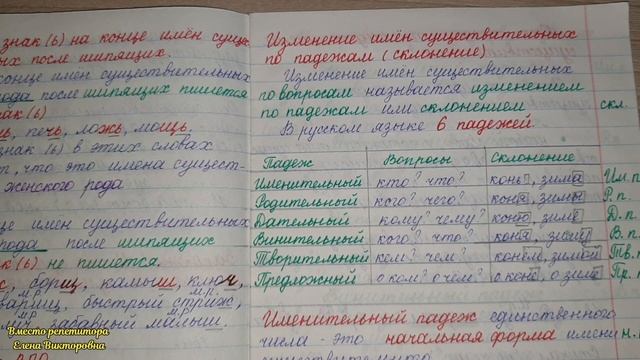 знак (ь) на конце имён сущес
ых после шипящих.
конце имён существительных
рода после шипящих пишется
ак (ь)
ь, печь, ложь, мощь.
знак (ь) в этих словах
т, что это имена сущест-
женского рода
це имён существительных
рода после шипящих
ак (ь) не пишется.
с, борщ, камыш, ключ,
м.р. м.р.
быстрый стриж,
м.р. м.р.
забавный малыш.
Вместо репетитора
Елена Викторовна
Изменение имён существительных
по падежам (склонение)
Изменение имён существительных
по вопросам называется изменением
по падежам или склонением скл.
В русском языке 6 падежей.
Падеж Вопросы Склонение
Именительный кто? что? конь, зима Им.п.
Родительный кого? чего? коня, зимы Р.п.
Дательный кому? чему? коню, зиме Д.п.
Винительный кого? что? коня, зиму В.п.
Творительный кем? чем? конём, зимой Тв.п.
Предложный о ком? о чём? о коне, о зиме Пр.
Именительный падеж единственного
числа - это начальная форма имени н.
существительного